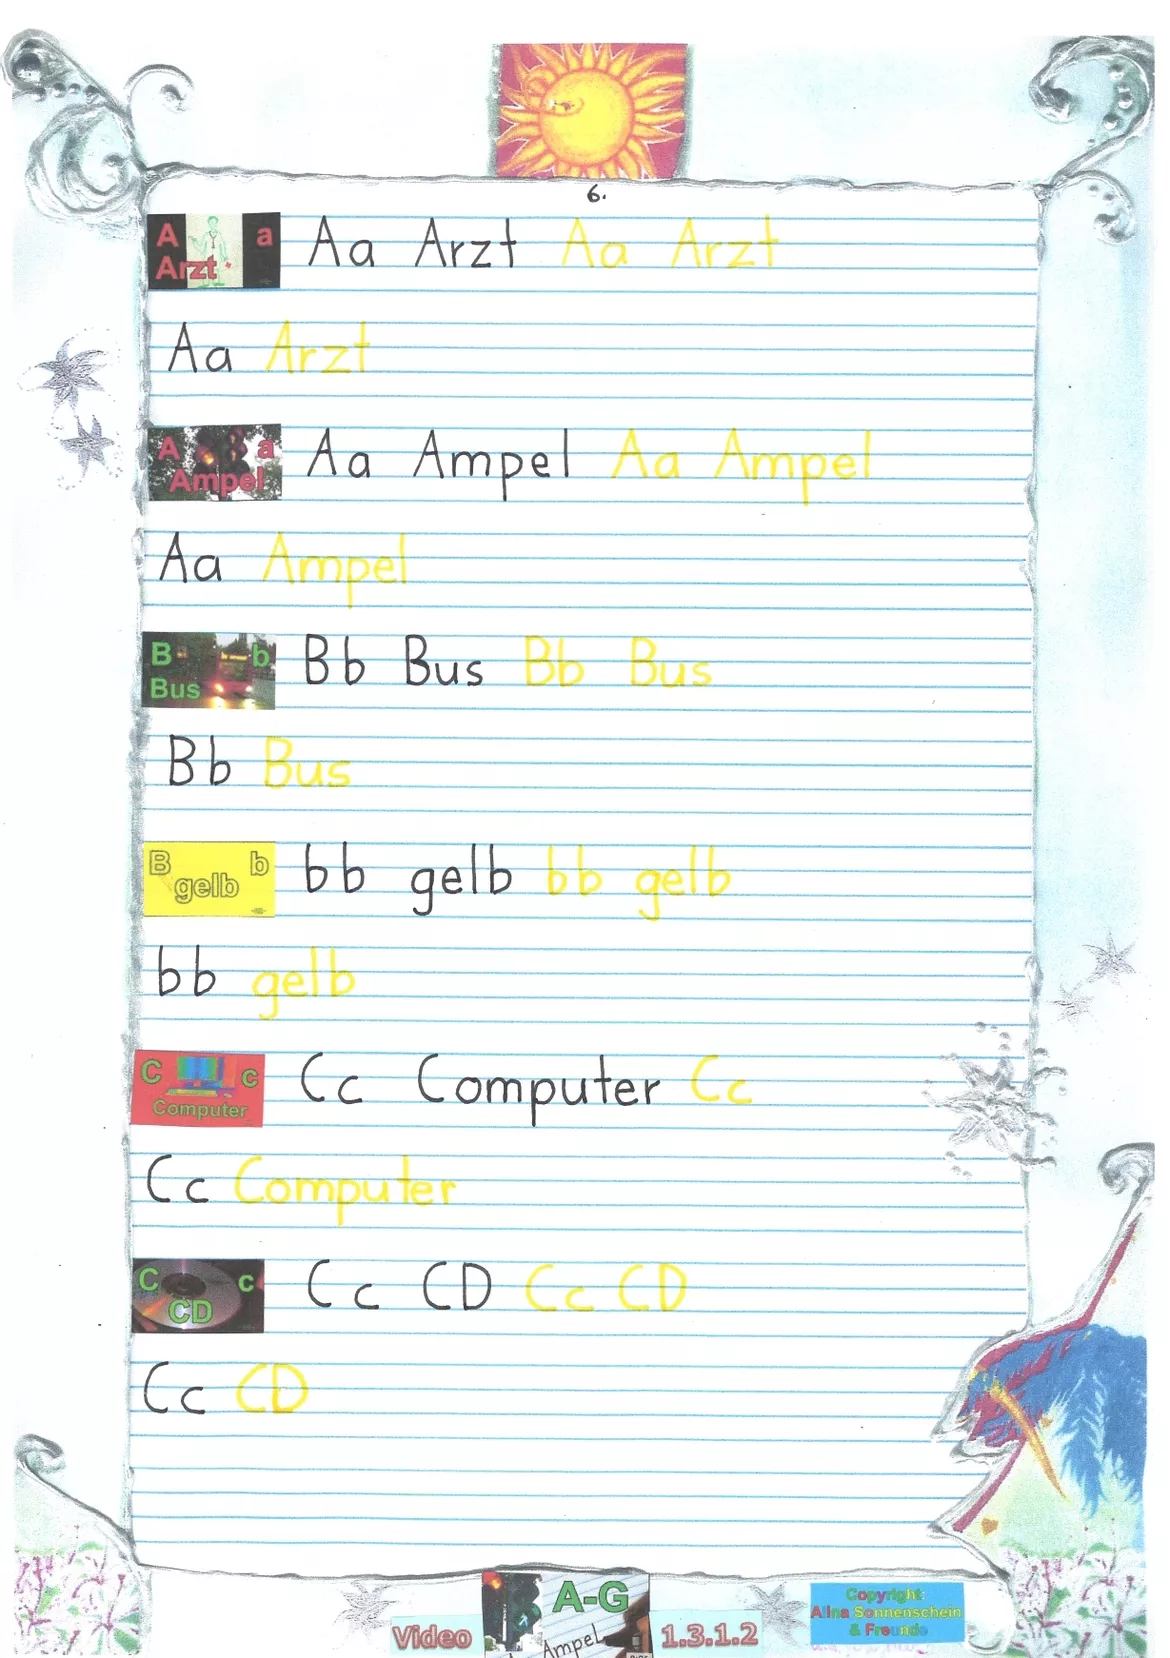 6.
A a
Arzt
Aa Arzt Aa Arzt
Aa Arzt
A a
Ampel
Aa Ampel Aa Ampel
Aa Ampel
B b
Bus
Bb Bus Bb Bus
Bb Bus
B b
gelb
bb gelb bb gelb
bb gelb
C c
Computer
Cc Computer Cc
Cc Computer
C c
CD
Cc CD Cc CD
Cc CD
A-G
Ampel
Video
1.3.1.2
Copyright:
Alina Sonnenschein
& Freunde